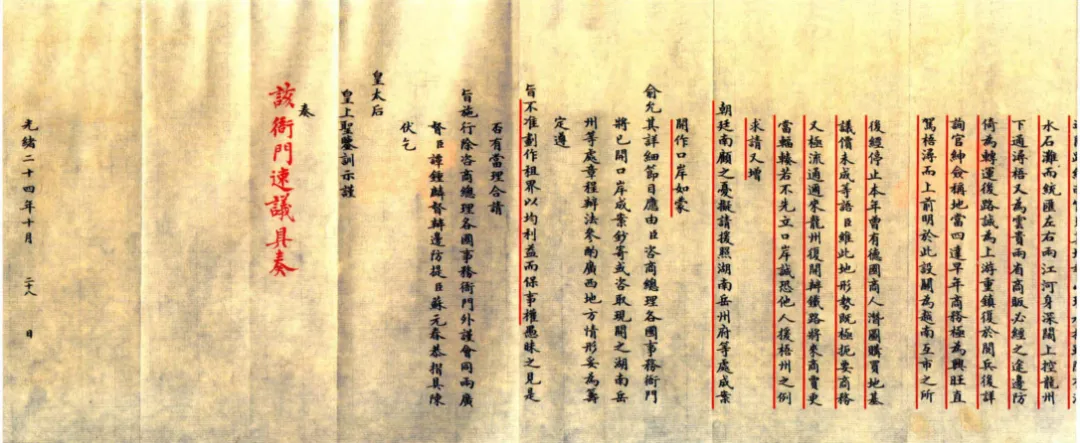 水石灘而統匯左右兩江河身深闊上控龍州
下通潯梧又為雲貴兩省商販必經之途邊防
倚為轉運後路誠為上游重鎮復於閱兵後詳
詢官紳僉稱地當四達早年商務極為興旺直
駕梧潯而上前明於此設關為越南互市之所
後經停止本年曾有德國商人潛圖購買地基
議價未成等語臣維此地形勢既極扼要商務
又極流通邇來龍州復開辦鐵路將來商賈更
當輻輳若不先立口岸誠恐他人援梧州之例
求請又增
朝廷南顧之憂擬請援照湖南岳州府等處成案
開作口岸如蒙
俞允其詳細節目應由臣咨商總理各國事務衙門
將已開口岸成案鈔寄或咨取現開之湖南岳
州等處章程辦法參酌廣西地方情形妥為籌
定遵
旨不准劃作租界以均利益而保事權愚昧之見是
否有當理合請
旨施行除咨商總理各國事務衙門外謹會同兩廣
督臣譚鍾麟督辦邊防提臣蘇元春恭摺具陳
伏乞
皇太后
皇上聖鑒訓示謹
奏
該衙門速議具奏
光緒二十四年十月 二十八 日